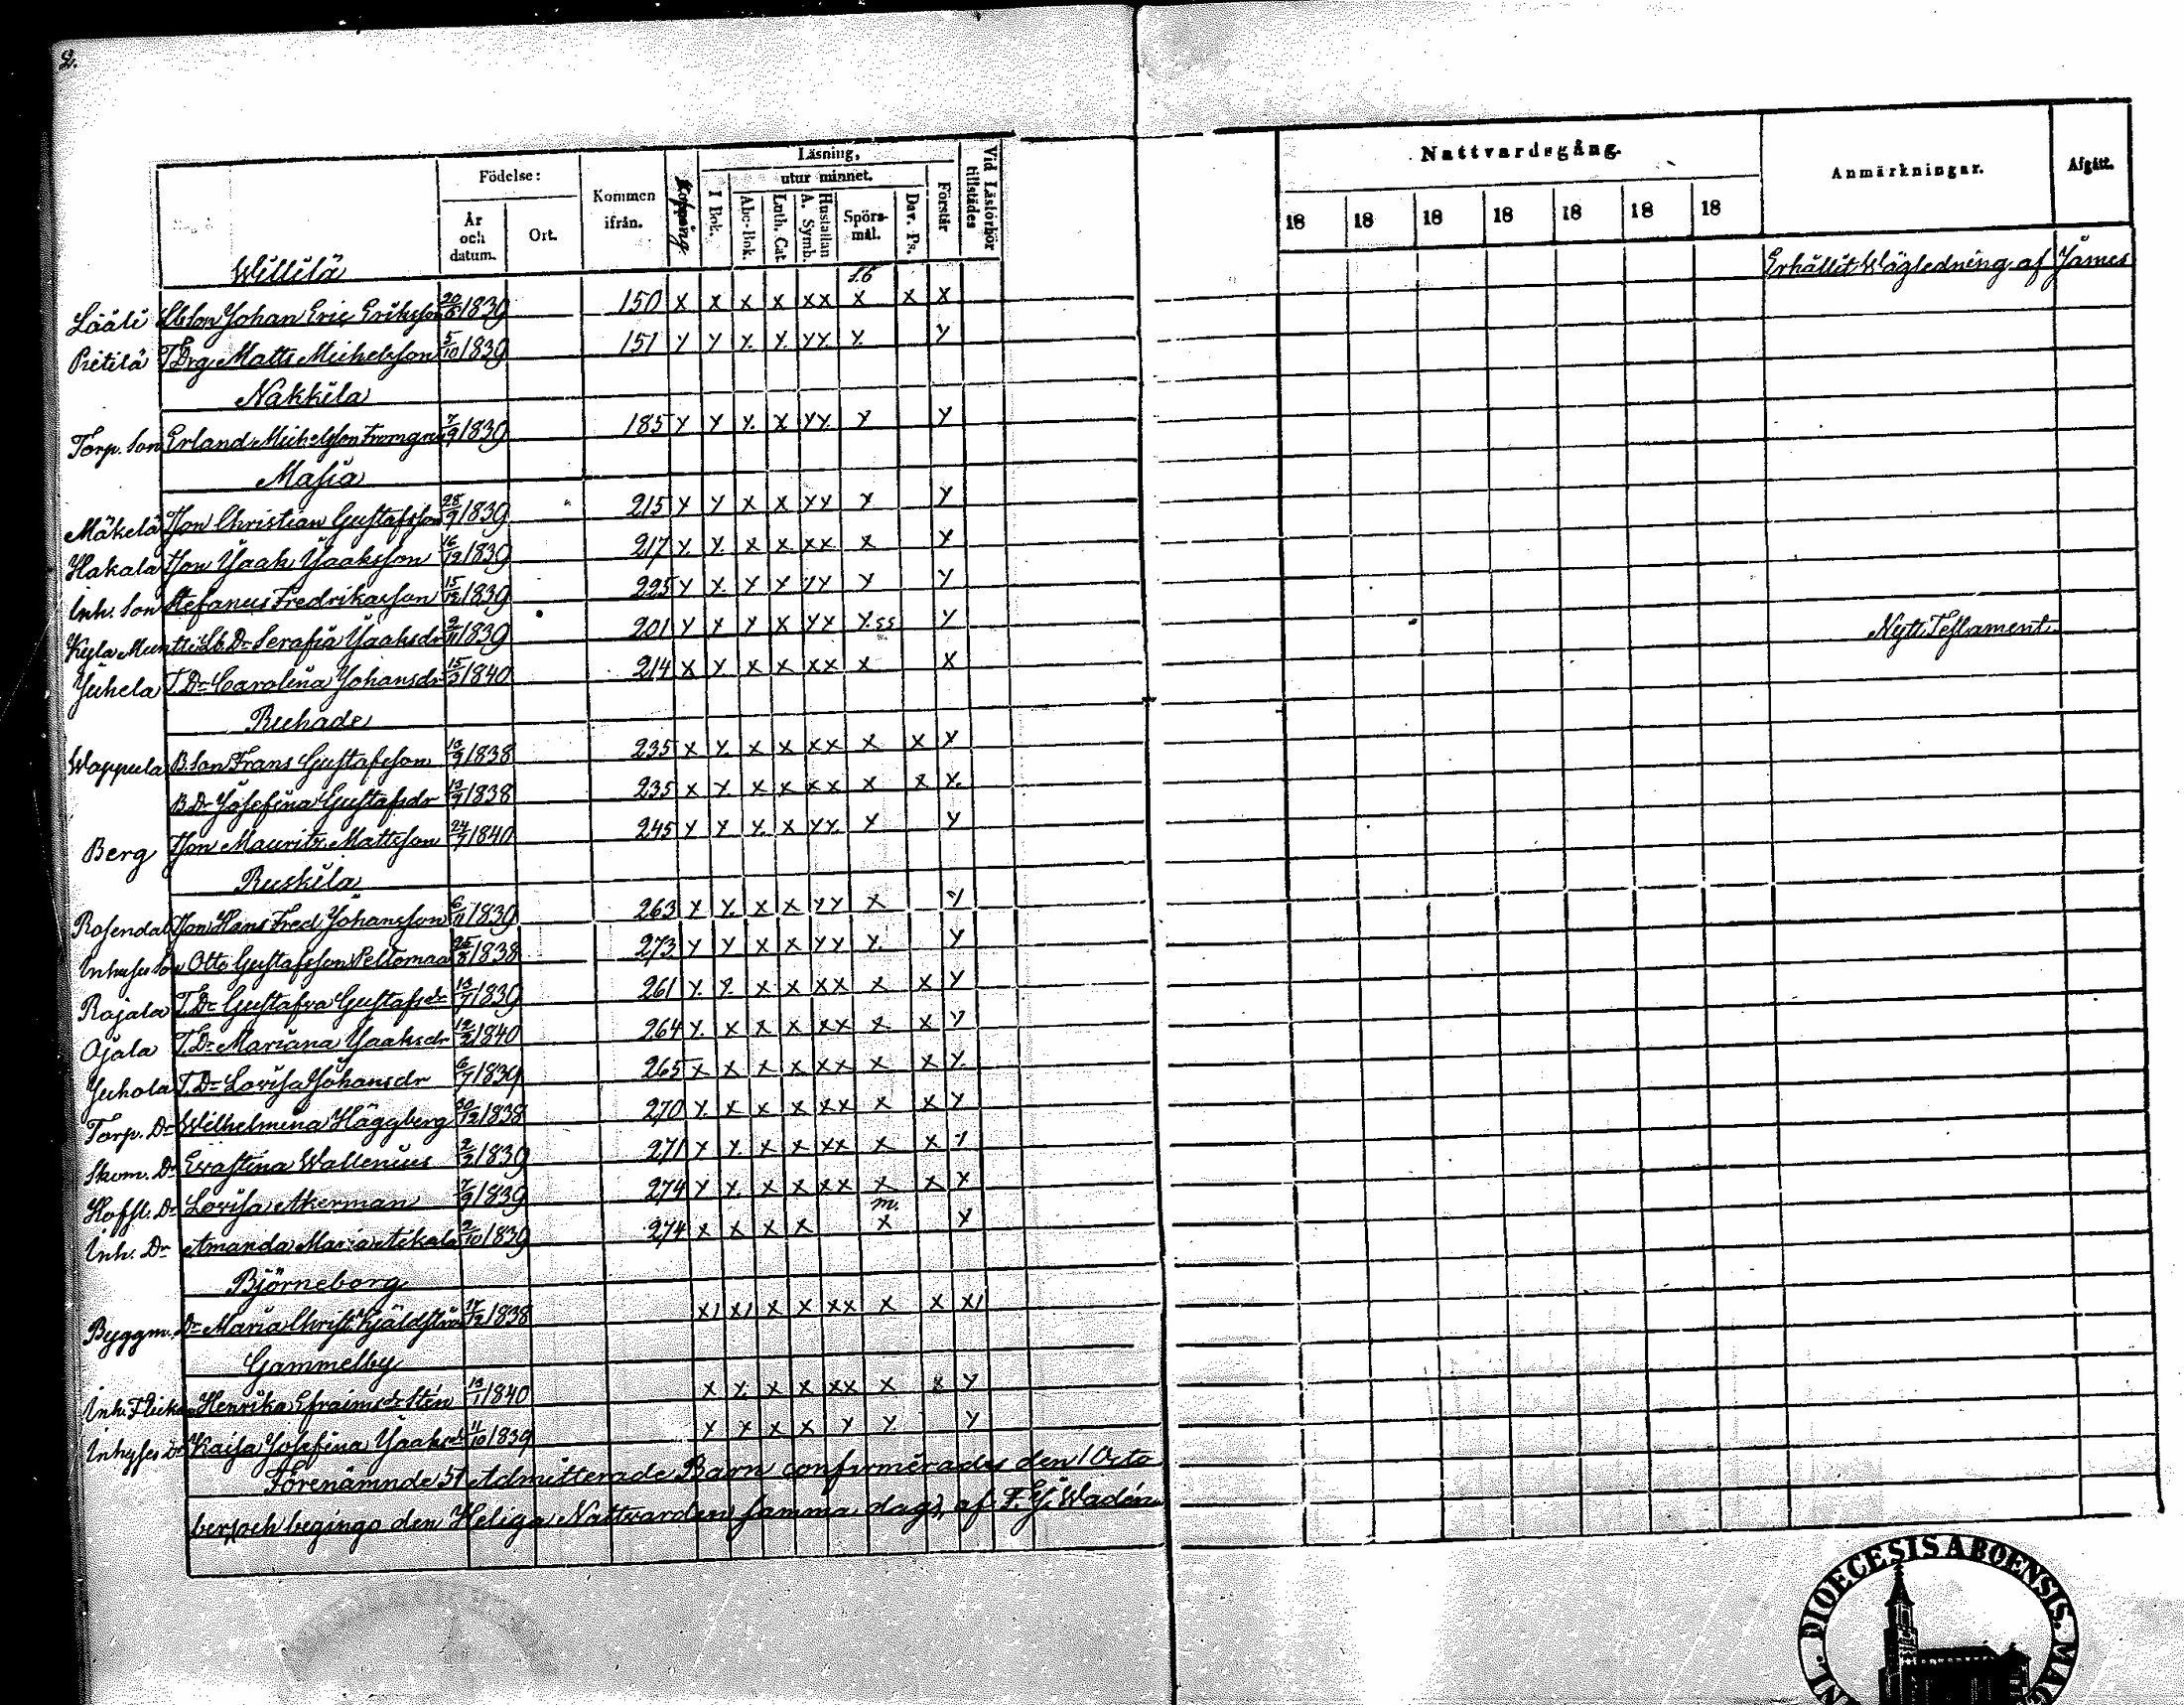 2.
Födelse:
År och datum.
Ort.
Kommen ifrån.
Läsning,
utur minnet.
I Bok.
Abc-Bok.
Luth. Cat.
Hustaflan A. Symb.
Spörsmål.
Dav. Ps.
Förstår
Vid Läsförhör tillstädes
Nattvardsgång.
18 18 18 18 18 18 18
Anmärkningar.
Afgått.
Willilä Erhållit Wägledning af James
Lääti Johan Eric Eriksson 1839 150 x x x x xx x x x
Pietilä T Drg Matts Michelsson 5/10 1839 151 x x x x xx x x
Nakkila
Torp. Son Erland Michelsson 7/9 1839 185 x x x x xx x x
Masia
Mäkelä TSon Christian Gustafsson 28/9 1839 215 x x x x xx x x
Hakala TSon Jaak Jaaksson 16/12 1839 217 x x x x xx x x
Inh. Son Stefanus Fredriksson 15/12 1839 225 x x x x xx x x
Kyla Muntti Dr Serafia Jaaksdr 2/11 1839 201 x x x x xx x x Nytt Testament
Juhela T. Dr Carolina Johansdr 1840 214 x x x x xx x x
Ruhade
Wappula B. Son Frans Gustafsson 13/9 1838 235 x x x x xx x x x
B. Dr Josefina Gustafsdr 13/9 1838 235 x x x x xx x x x
Berg TSon Mauritz Mattsson 24/7 1840 245 x x x x xx x x
Ruskila
Rosendal TSon Hans Fred Johansson 6/11 1839 263 x x x x xx x x
Inhyses Son Otto Gustafsson Peltomaa 1838 273 x x x x xx x x
Rajala T. Dr Gustafva Gustafsdr 13/7 1839 261 x x x x xx x x x
Ojala T. Dr Mariana Jaaksdr 12/2 1840 264 x x x x xx x x x
Juhola T. Dr Lovisa Johansdr 6/7 1839 265 x x x x xx x x x
Torp. Dr Wilhelmina Häggberg 30/12 1838 270 x x x x xx x x x
Skom. Dr Evastina Wallenius 2/2 1839 271 x x x x xx x x x
Hofsl. Dr Lovisa Akerman 7/9 1839 274 x x x x xx x x x
Inh. Dr Amanda Maria 2/10 1839 274 x x x x x x
Björneborg
Byggm. Dr Maria Christ. 17/12 1838 x x x x xx x x x
Gammelby
Inh. Flickan Henrika Efraimsdr Sten 13/1 1840 x x x x xx x x x
Inhyses Dr Kaisa Josefina Jaaksdr 11/10 1839 x x x x x x x
Förenämnde 51 Admitterade Barn confirmerades den 1 Octo
ber, och begingo den Heliga Nattvarden samma dag, af F. J. Wadén
DIOECESIS ABOENSIS.